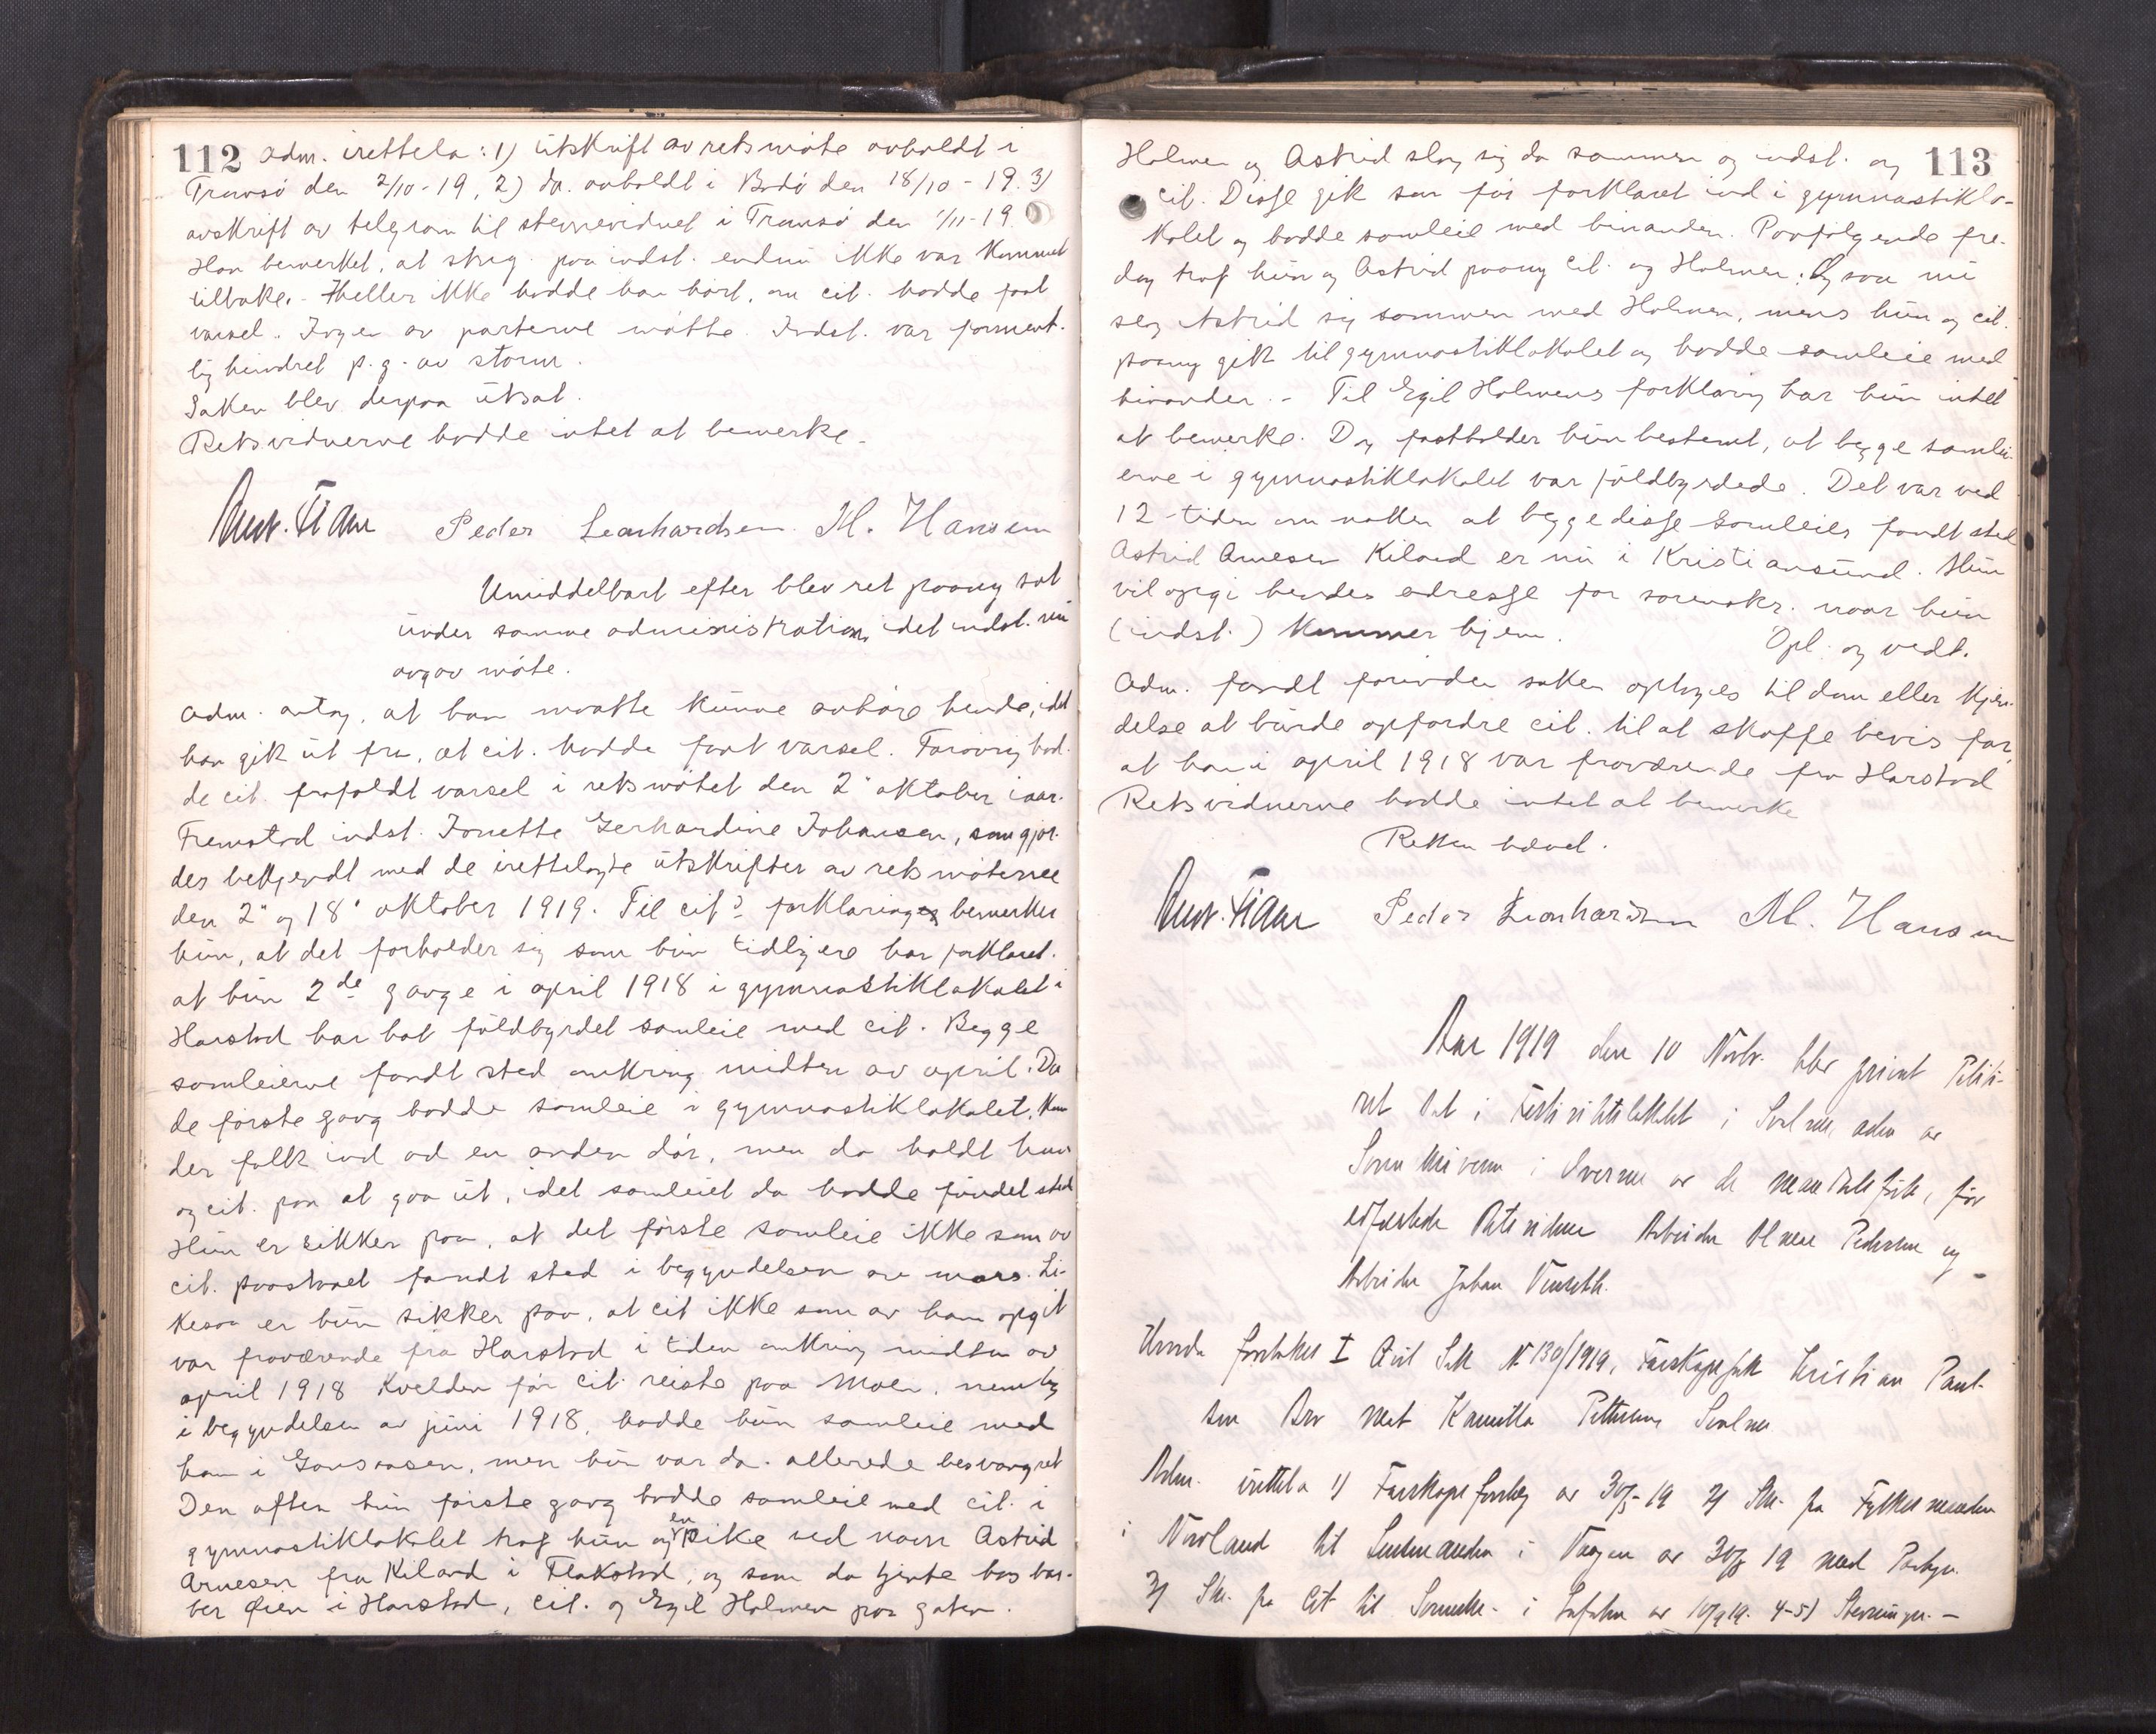 112 Adm. irettela: 1) utskrift av retsmøte avholdt i
Tromsø den 2/10-19, 2) do. avholdt i Bodø den 18/10-19. 3)
avskrift av telgram til stevnevidnet i Tromsø den 1/11-19.
Han bemerket, at stevng. paa indst. endnu ikke var kommet
tilbake. - Heller ikke hadde han hørt, om cit. hadde faat
varsel. Ingen av parterne møtte. Indst. var forment-
lig hindret p.g. av storm.
Saken blev derpaa utsat.
Retsvidnerne hadde intet at bemerke.
Peder Leonhardsen M. Hansen
Umiddelbart efter blev ret paany sat
under samme administration, idet indst. nu
avgav møte.
Adm. antog, at han maatte kunne avhøre hende, idet
han gik ut fra, at cit. hadde faat varsel. Forøvrig had-
de cit. frafaldt varsel i retsmøtet den 2' oktober iaar.
Fremstod indst. Jonette Gerhardine Johansen, som gjor-
des bekjendt med de irettelagte utskrifter av retsmøterne
den 2' og 18' oktober 1919. Til cits forklaringer bemerker
hun, at det forholder sig som hun tidligere har forklaret.
at hun 2de gange i april 1918 i gymnastiklokalet i
Harstad har hat fuldbyrdet samleie med cit. Begge
samleierne fandt sted omkring midten av april. Da
de første gang hadde samleie i gymnastiklokalet, kom
der folk ind ad en anden dør, men da holdt hun
og cit. paa at gaa ut, idet samleiet da hadde fundet sted
Hun er sikker paa, at det første samleie ikke som av
cit. paastaaet fandt sted i begyndelsen av mars. Li-
kesaa er hun sikker paa, at cit ikke som av ham opgit
var fraværende fra Harstad i tiden omkring midten av
april 1918 Kvelden før cit. reiste paa Moen, nemlig
i begyndelsen av juni 1918, hadde hun samleie med
ham i Gansaasen, men hun var da allerede besvangret
Den aften hun første gang hadde samleie med cit. i
gymnastiklokalet traf hun og en pike ved navn Astrid
Arnesen fra Kiland i Flakstad, og som da tjente hos bar-
ber Øien i Harstad, cit. og Egil Holmen paa gaten.
113
Holmen og Astrid slog sig da sammen og indst. og
cit. Disse gik som før forklaret ind i gymnastiklo-
kalet og hadde samleie med hinanden. Paafølgende fre-
dag traf hun og Astrid paany cit. og Holmen: Og saa nu
slog Astrid sig sammen med Holmen, mens hun og cit.
paany gik til gymnastiklokalet og hadde samleie med
hinanden. - Til Egil Holmens forklaring har hun intet
at bemerke. Dog fastholder hun bestemt, at begge samlei-
erne i gymnastiklokalet var fuldbyrdede. Det var ved
12 tiden om natten at begge disse samleier fandt sted
Astrid Arnesen Kiland er nu i Kristiansund. Hun
vil opgi hendes adresse for sorenskr. naar hun
(indst.) kommer hjem. Opl. og vedt.
Adm. fandt forinden saken optages til dom eller kjen-
delse at burde opfordre cit. til at skaffe bevis for,
at han i april 1918 var fraværende fra Harstad
Retsvidnerne hadde intet at bemerke
Retten hævet.
Peder Leonhardsen M. Hansen
Aar 1919 den 10 Novbr. blev privat Politi-
ret sat i i Svolvær, adm av
Sorenskriveren i overvær av de nævnte, før
edfæstede Retsvidner Arbeider Pedersen og
Arbeider Johan
foretakes I Civil Sak N 130/1919, Farskapssak Kristian Paul-
sen mot Kamilla Svolvær
Adm. irettela 1) Farskapsforelæg av 30/5-19 2) Skr. fra Fylkesmanden
i Nordland til Lensmanden i Vaagan av 30/8 19 med Paategn.
3) Skr. fra Cit til Sorenskr. i Lofoten av 10/9 19. 4-5) Stevninger. -